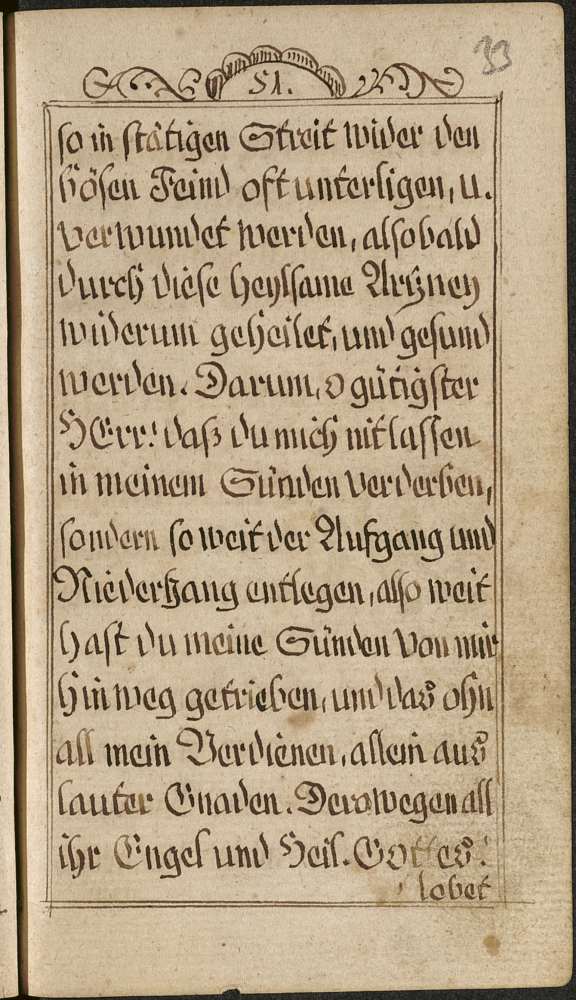 33
51.
so in stätigen Streit wider den
bösen Feind oft unterligen, u.
verwundet werden, alsobald
durch diese heylsame Artzney
widerum geheilet, und gesund
werden. Darum, o gütigster
HErr! daß du mich nit lassen
in meinem Sünden verderben,
sondern so weit der Aufgang und
Niedergang entlegen, also weit
hast du meine Sünden von mir
hinweg getrieben, und das ohn
all mein Verdienen, allein aus
lauter Gnaden. Derowegen all
ihr Engel und Heil. Gottes!
lobet